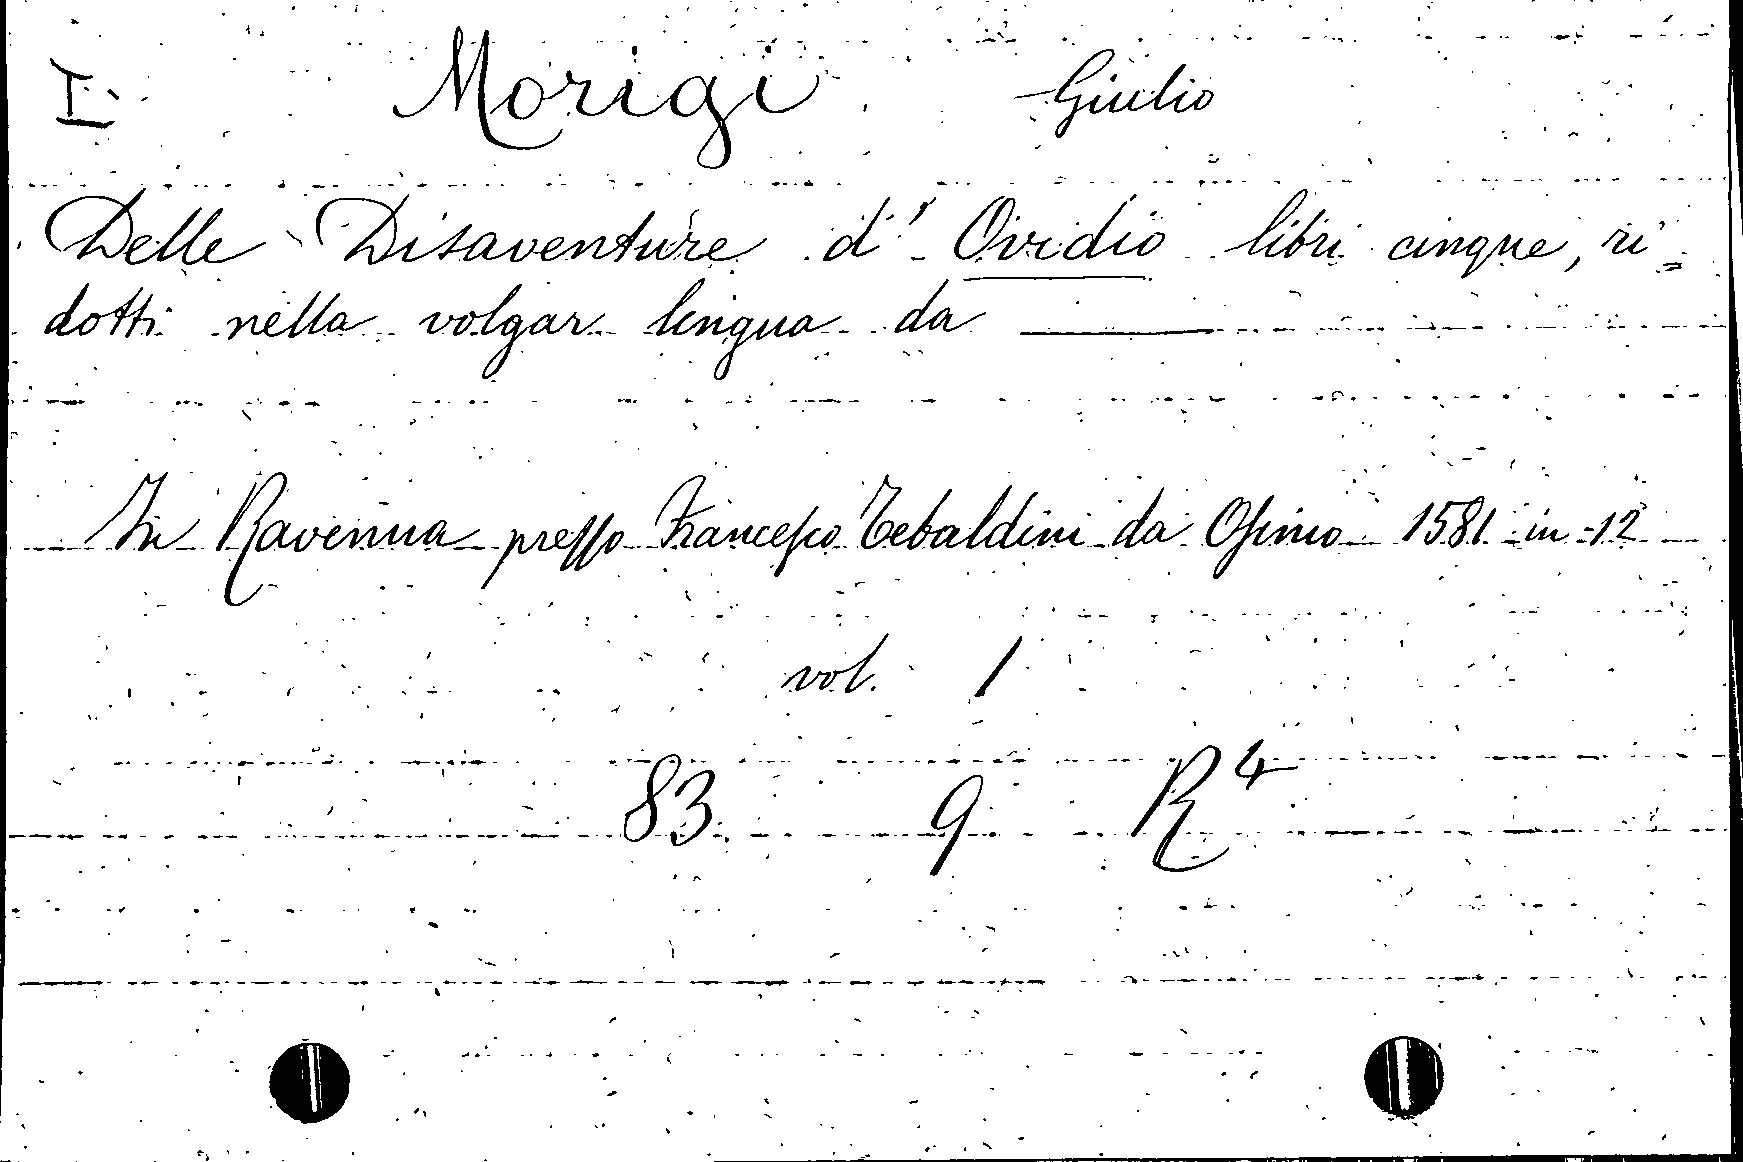 I. Morigi Giulio
Delle Disaventure d' Ovidio libri cinque, ri=
dotti nella volgar lingua da ———
In Ravenna presso Francesco Tebaldini da Osimo 1581 in-12
vol. 1
83 9 R4